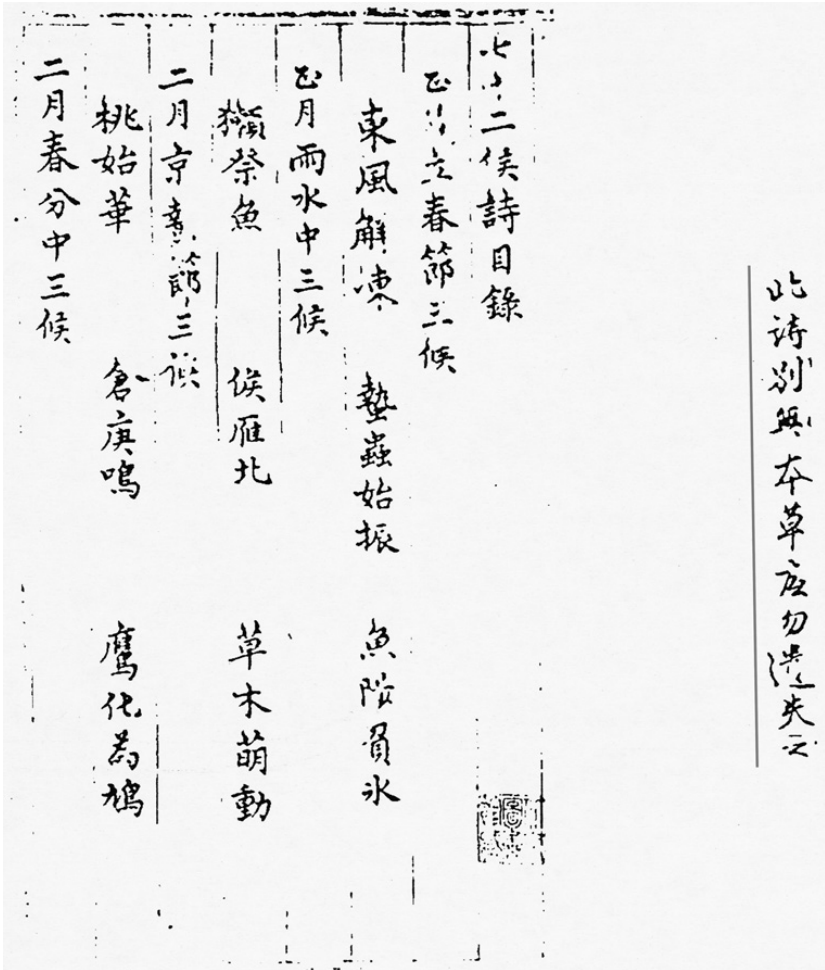 此詩別無本草 勿遺失云
七十二候詩目錄
正月立春節三候
東風解凍 蟄蟲始振 魚陟負氷
正月雨水中三候
獺祭魚 候雁北 草木萌動
二月京蟄節三候
桃始華 倉庚鳴 鷹化為鳩
二月春分中三候